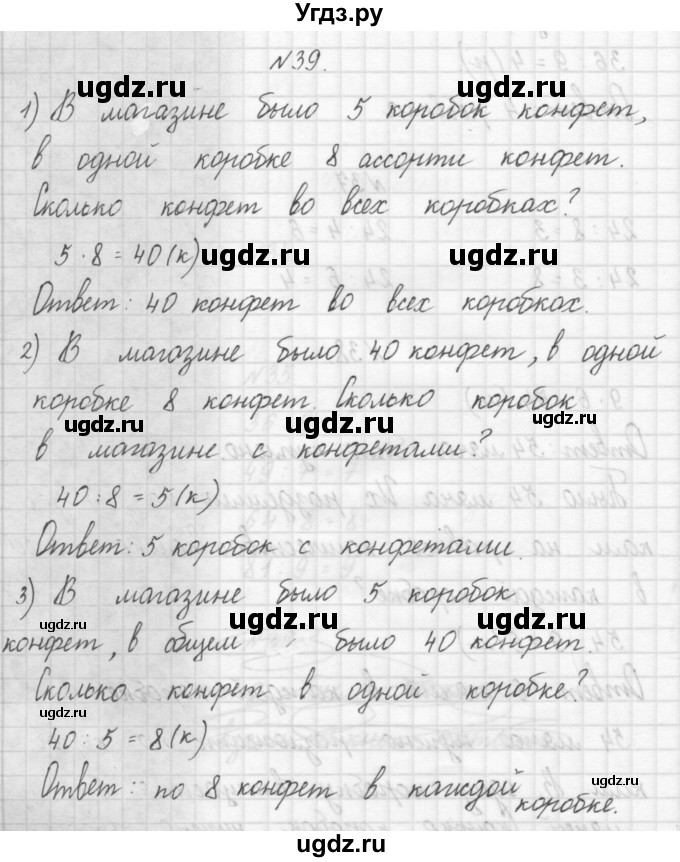 Угдз.ру
№39.
1) В магазине было 5 коробок конфет,
в одной коробке 8 ассорти конфет.
Сколько конфет во всех коробках?
5 · 8 = 40 (к)
Ответ: 40 конфет во всех коробках.
2) В магазине было 40 конфет, в одной
коробке 8 конфет. Сколько коробок
в магазине с конфетами?
40 : 8 = 5 (к)
Ответ: 5 коробок с конфетами.
3) В магазине было 5 коробок
конфет, в общем было 40 конфет.
Сколько конфет в одной коробке?
40 : 5 = 8 (к)
Ответ: по 8 конфет в каждой
коробке.
Угдз.ру